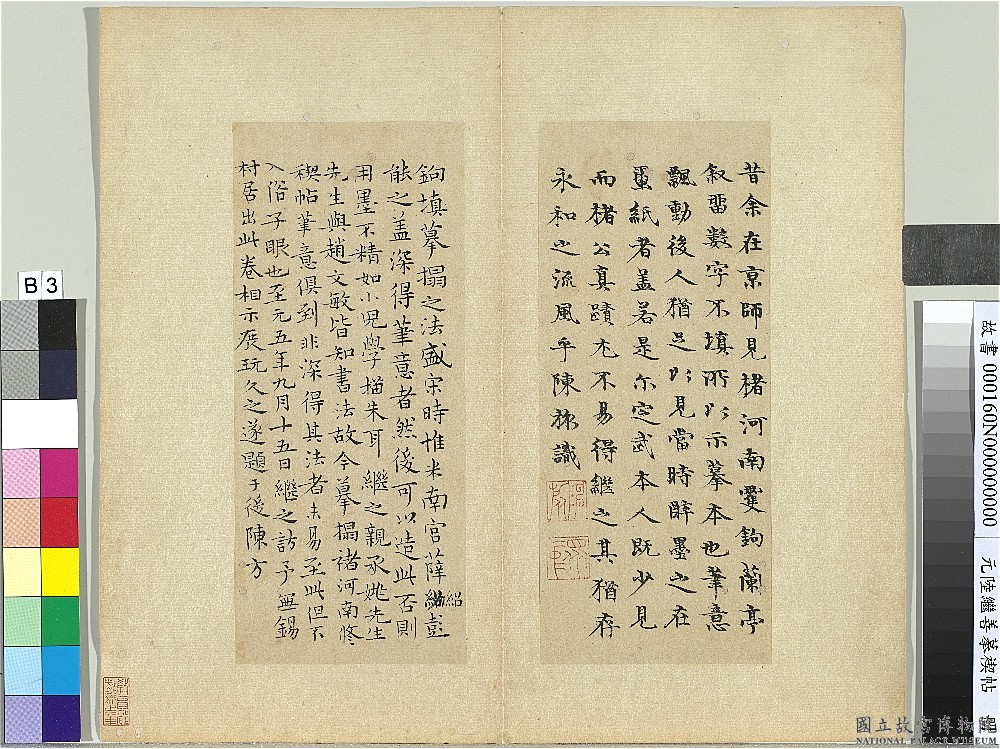 昔余在京師見褚河南雙鉤蘭亭
叙畱數字不填所以示摹本也筆意
飄動後人猶足以見當時睟墨之在
璽紙者盖若是尔定武本人既少見
而褚公真蹟尤不易得繼之其猶存
永和之流風乎陳旅識
鉤填摹搨之法盛宋時推米南宮薛紹彭
紹
能之盖深得筆意者然後可以造此否則
用墨不精如小兒學描朱耳繼之親承姚先生
先生與趙文敏皆知書法故今摹搨褚河南脩
稧帖筆意俱到非深得其法者未易至此但不
入俗子眼也至元五年九月十五日繼之訪予無錫
村居出此卷相示展玩久之遂題于後陳方
B 3
故書 000160N000000000
元陸繼善摹禊帖
國立故宮博物院
NATIONAL PALACE MUSEUM